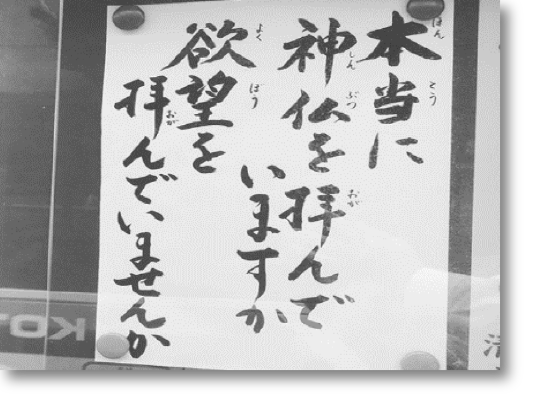 本当に
神仏を拝んで
いますか
欲望を
拝んでいませんか
ほん
とう
しん
ぶつ
おが
よく
ぼう
おが
KO
清